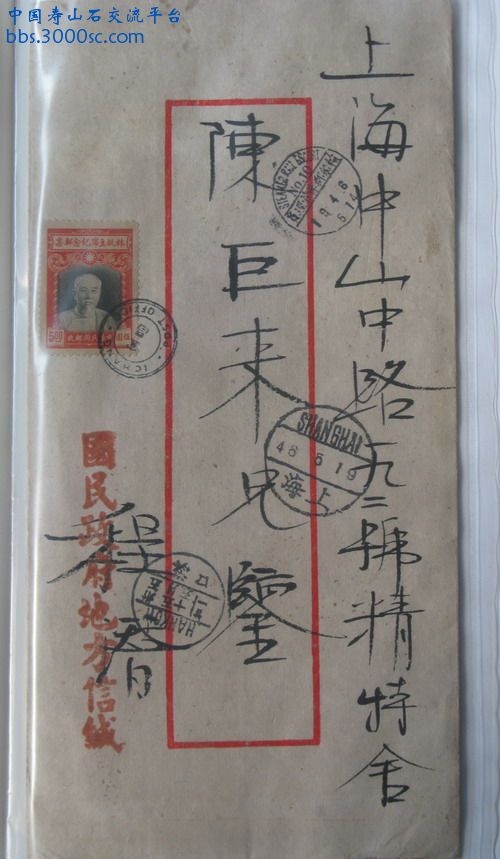 中国寿山石交流平台
bbs.3000sc.com
上海中山中路一九二號精特舍
陳巨来兄鑒
國民政府地方信緘
程君
林故主席紀念郵票
500
SHANGHAI
46 5 19
上海
HANKOW
口漢
ICHANG
POST OFFICE
19.4.6
5 14